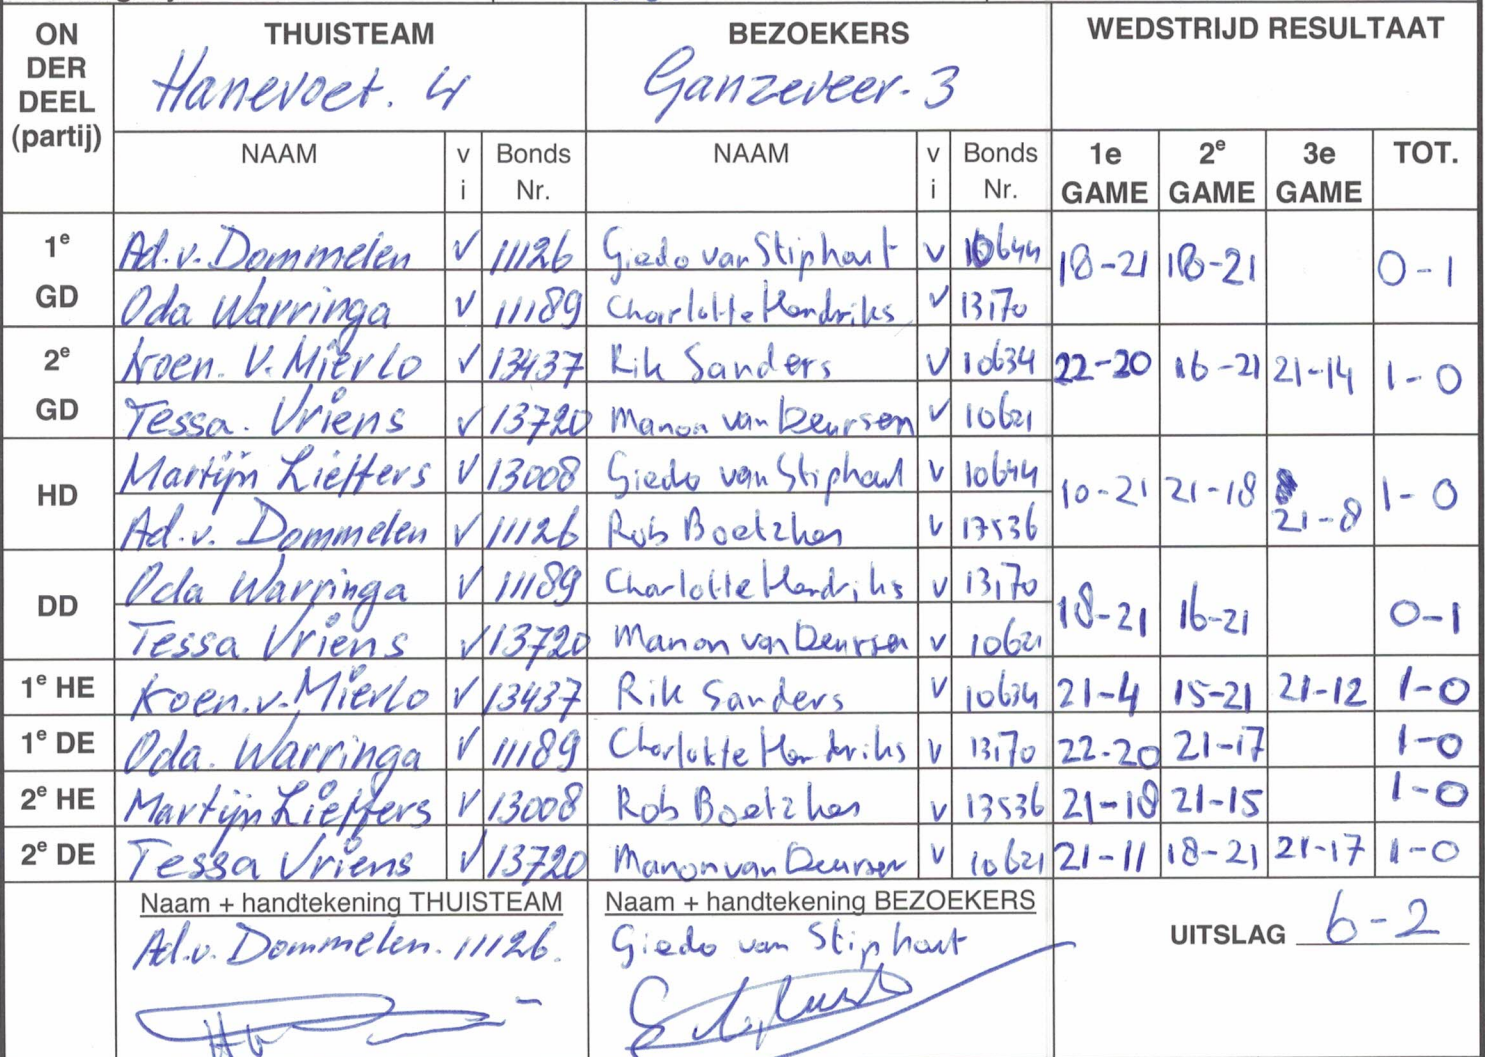 ON DER DEEL (partij) THUISTEAM BEZOEKERS WEDSTRIJD RESULTAAT
Hanevoet. 4 Ganzeveer. 3
NAAM vi Bonds Nr. NAAM vi Bonds Nr. 1e GAME 2e GAME 3e GAME TOT.
1e GD Ad. v. Dommelen v 11126 Giedo van Stiphout v 10644 18-21 18-21 0-1
Oda Warringa v 11189 Charlotte Hendriks v 13170
2e GD Koen. v. Mierlo v 13437 Rik Sanders v 10634 22-20 16-21 21-14 1-0
Tessa. Vriens v 13720 Manon van Deursen v 10621
HD Martijn Lieffers v 13008 Giedo van Stiphout v 10644 10-21 21-18 21-8 1-0
Ad. v. Dommelen v 11126 Rob Boetzkes v 13536
DD Oda Warringa v 11189 Charlotte Hendriks v 13170 18-21 16-21 0-1
Tessa Vriens v 13720 Manon van Deursen v 10621
1e HE Koen. v. Mierlo v 13437 Rik Sanders v 10634 21-4 15-21 21-12 1-0
1e DE Oda. Warringa v 11189 Charlotte Hendriks v 13170 22-20 21-17 1-0
2e HE Martijn Lieffers v 13008 Rob Boetzkes v 13536 21-18 21-15 1-0
2e DE Tessa Vriens v 13720 Manon van Deursen v 10621 21-11 18-21 21-17 1-0
Naam + handtekening THUISTEAM Naam + handtekening BEZOEKERS
Ad. v. Dommelen. 11126. Giedo van Stiphout UITSLAG 6-2